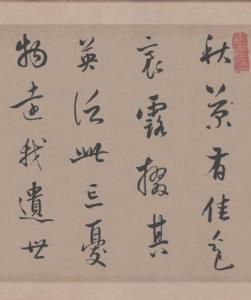 秋菊有佳色
裛露掇其
英泛此忘憂
物遠我遺世